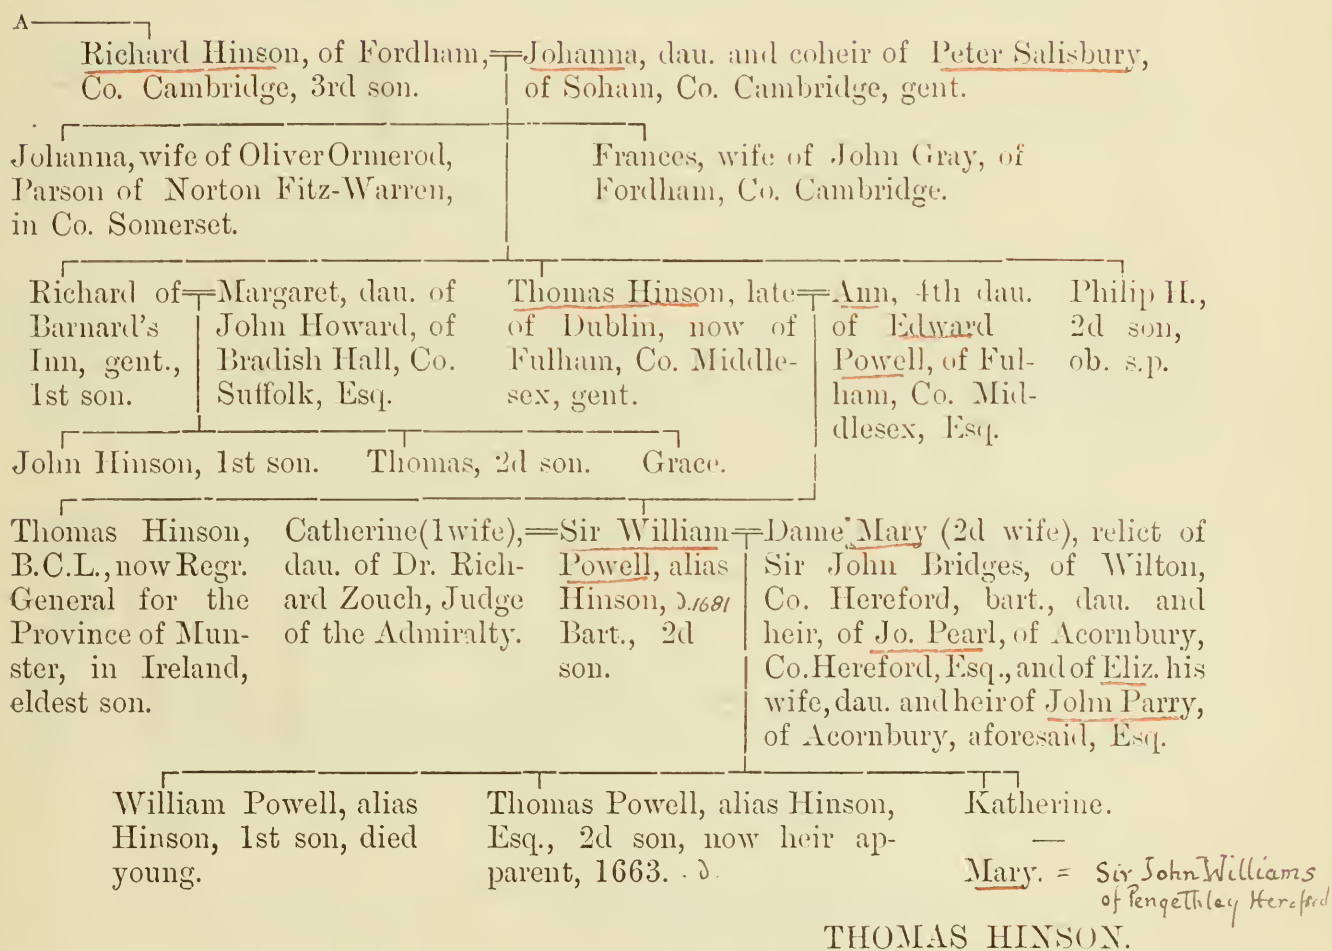 A
Richard Hinson, of Fordham,
Co. Cambridge, 3rd son.
Johanna, dau. and coheir of Peter Salisbury,
of Soham, Co. Cambridge, gent.
Johanna, wife of Oliver Ormerod,
Parson of Norton Fitz-Warren,
in Co. Somerset.
Frances, wife of John Gray, of
Fordham, Co. Cambridge.
Richard of
Barnard's
Inn, gent.,
1st son.
Margaret, dau. of
John Howard, of
Bradish Hall, Co.
Suffolk, Esq.
Thomas Hinson, late
of Dublin, now of
Fulham, Co. Middle-
sex, gent.
Ann, 4th dau.
of Edward
Powell, of Ful-
ham, Co. Mid-
dlesex, Esq.
Philip H.,
2d son,
ob. s.p.
John Hinson, 1st son.
Thomas, 2d son.
Grace.
Thomas Hinson,
B.C.L., now Regr.
General for the
Province of Mun-
ster, in Ireland,
eldest son.
Catherine (1 wife),
dau. of Dr. Rich-
ard Zouch, Judge
of the Admiralty.
Sir William
Powell, alias
Hinson, d.1681
Bart., 2d
son.
Dame Mary (2d wife), relict of
Sir John Bridges, of Wilton,
Co. Hereford, bart., dau. and
heir, of Jo. Pearl, of Acornbury,
Co. Hereford, Esq., and of Eliz. his
wife, dau. and heir of John Parry,
of Acornbury, aforesaid, Esq.
William Powell, alias
Hinson, 1st son, died
young.
Thomas Powell, alias Hinson,
Esq., 2d son, now heir ap-
parent, 1663. d.
Katherine.
—
Mary. = Sir John Williams
of Pengethley Hereford
THOMAS HINSON.